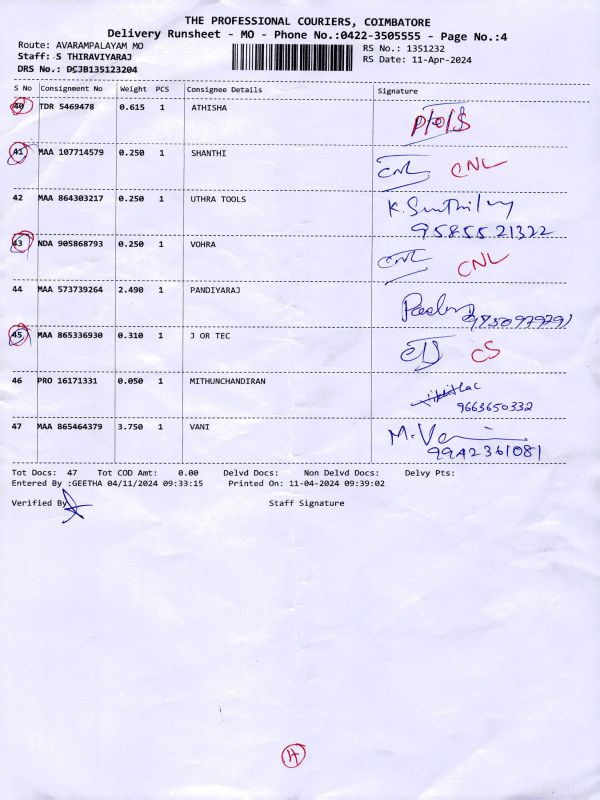 THE PROFESSIONAL COURIERS, COIMBATORE
Delivery Runsheet - MO - Phone No.:0422-3505555 - Page No.:4
Route: AVARAMPALAYAM MO RS No.: 1351232
Staff: S THIRAVIYARAJ RS Date: 11-Apr-2024
DRS No.: DCJB135123204
S No Consignment No Weight PCS Consignee Details Signature
40 TDR 5469478 0.615 1 ATHISHA
41 MAA 107714579 0.250 1 SHANTHI CNL CNL
42 MAA 864303217 0.250 1 UTHRA TOOLS
9585521322
43 NDA 905868793 0.250 1 VOHRA CNL CNL
44 MAA 573739264 2.490 1 PANDIYARAJ
45 MAA 865336930 0.310 1 J OR TEC CS
46 PRO 16171331 0.050 1 MITHUNCHANDIRAN
9663650332
47 MAA 865464379 3.750 1 VANI M.Vani
9942361081
Tot Docs: 47 Tot COD Amt: 0.00 Delvd Docs: Non Delvd Docs: Delvy Pts:
Entered By :GEETHA 04/11/2024 09:33:15 Printed On: 11-04-2024 09:39:02
Verified By Staff Signature